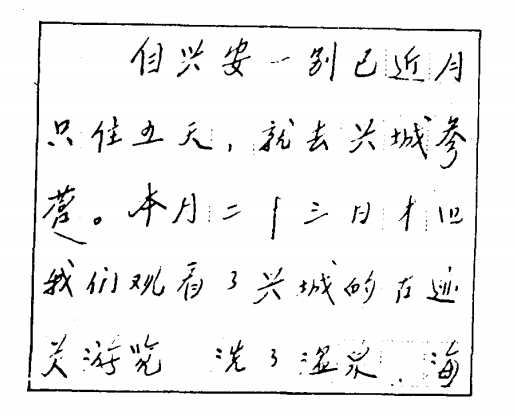 自兴安一别已近月
只住五天，就去兴城参
营。本月二十三日才回
我们观看了兴城的古迹
关游览 洗了温泉.海